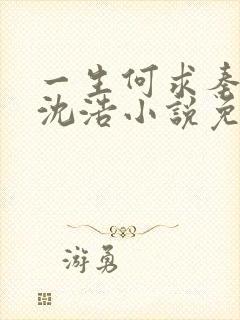 一生何求秦
沈浩小說免
游勇